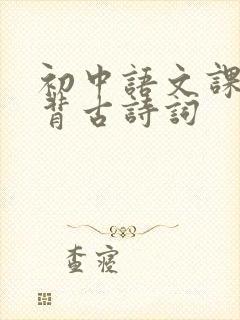 初中語文課
背古詩詞
查寢